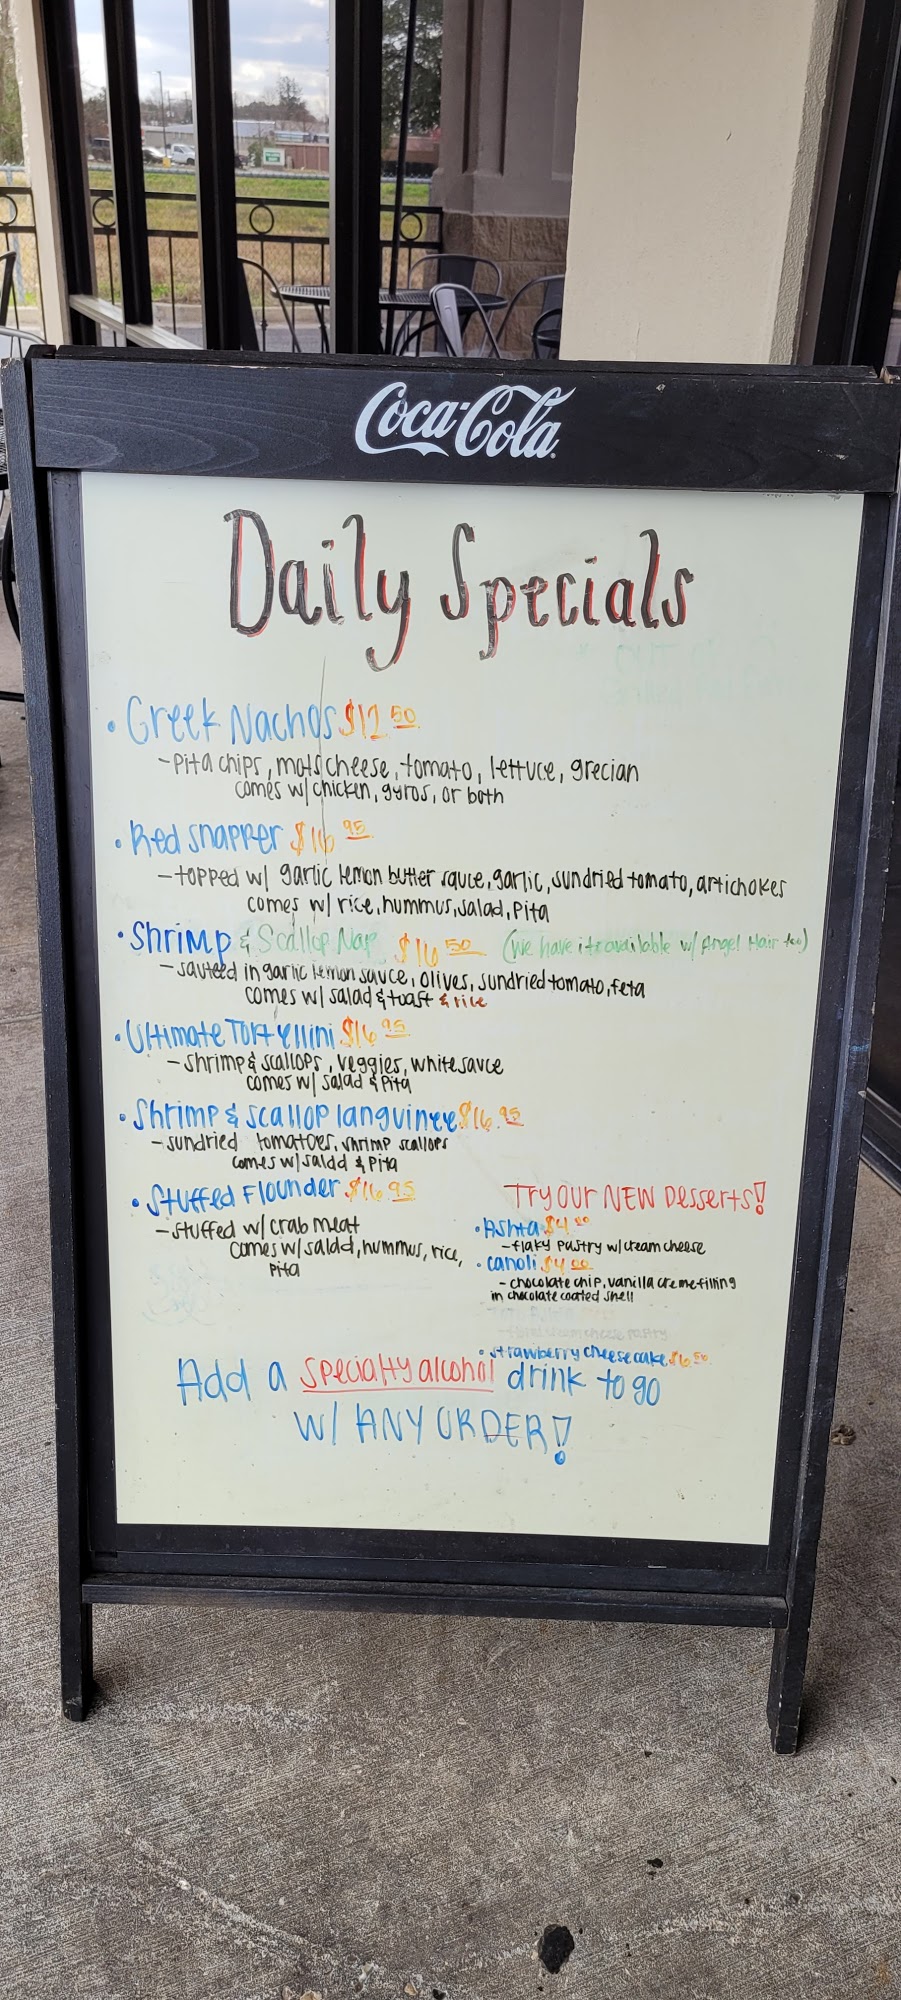 Coca-Cola
Daily Specials
• Greek Nachos $12.50
- Pita chips, mots cheese, tomato, lettuce, grecian
comes w/ chicken, gyros, or both
• Red snapper $16.95
- topped w/ garlic lemon butter sauce, garlic, sundried tomato, artichokes
comes w/ rice, hummus, salad, pita
• Shrimp & Scallop Nap $16.50 (We have it available w/ Angel Hair too)
- sauteed in garlic lemon sauce, olives, sundried tomato, feta
comes w/ salad & toast & rice
• Ultimate Tortellini $16.95
- shrimp & scallops, veggies, white sauce
comes w/ salad & pita
• Shrimp & scallop languinee $16.95
- sundried tomatoes, shrimp scallops
comes w/ salad & pita
• Stuffed Flounder $16.95
- stuffed w/ crab meat
comes w/ salad, hummus, rice,
pita
Try our NEW Desserts!
• Ashta $4.00
- flaky pastry w/ cream cheese
• canoli $4.00
- chocolate chip, vanilla creme filling
in chocolate coated shell
• strawberry cheesecake $6.50
Add a specialty alcohol drink to go
w/ ANY ORDER!